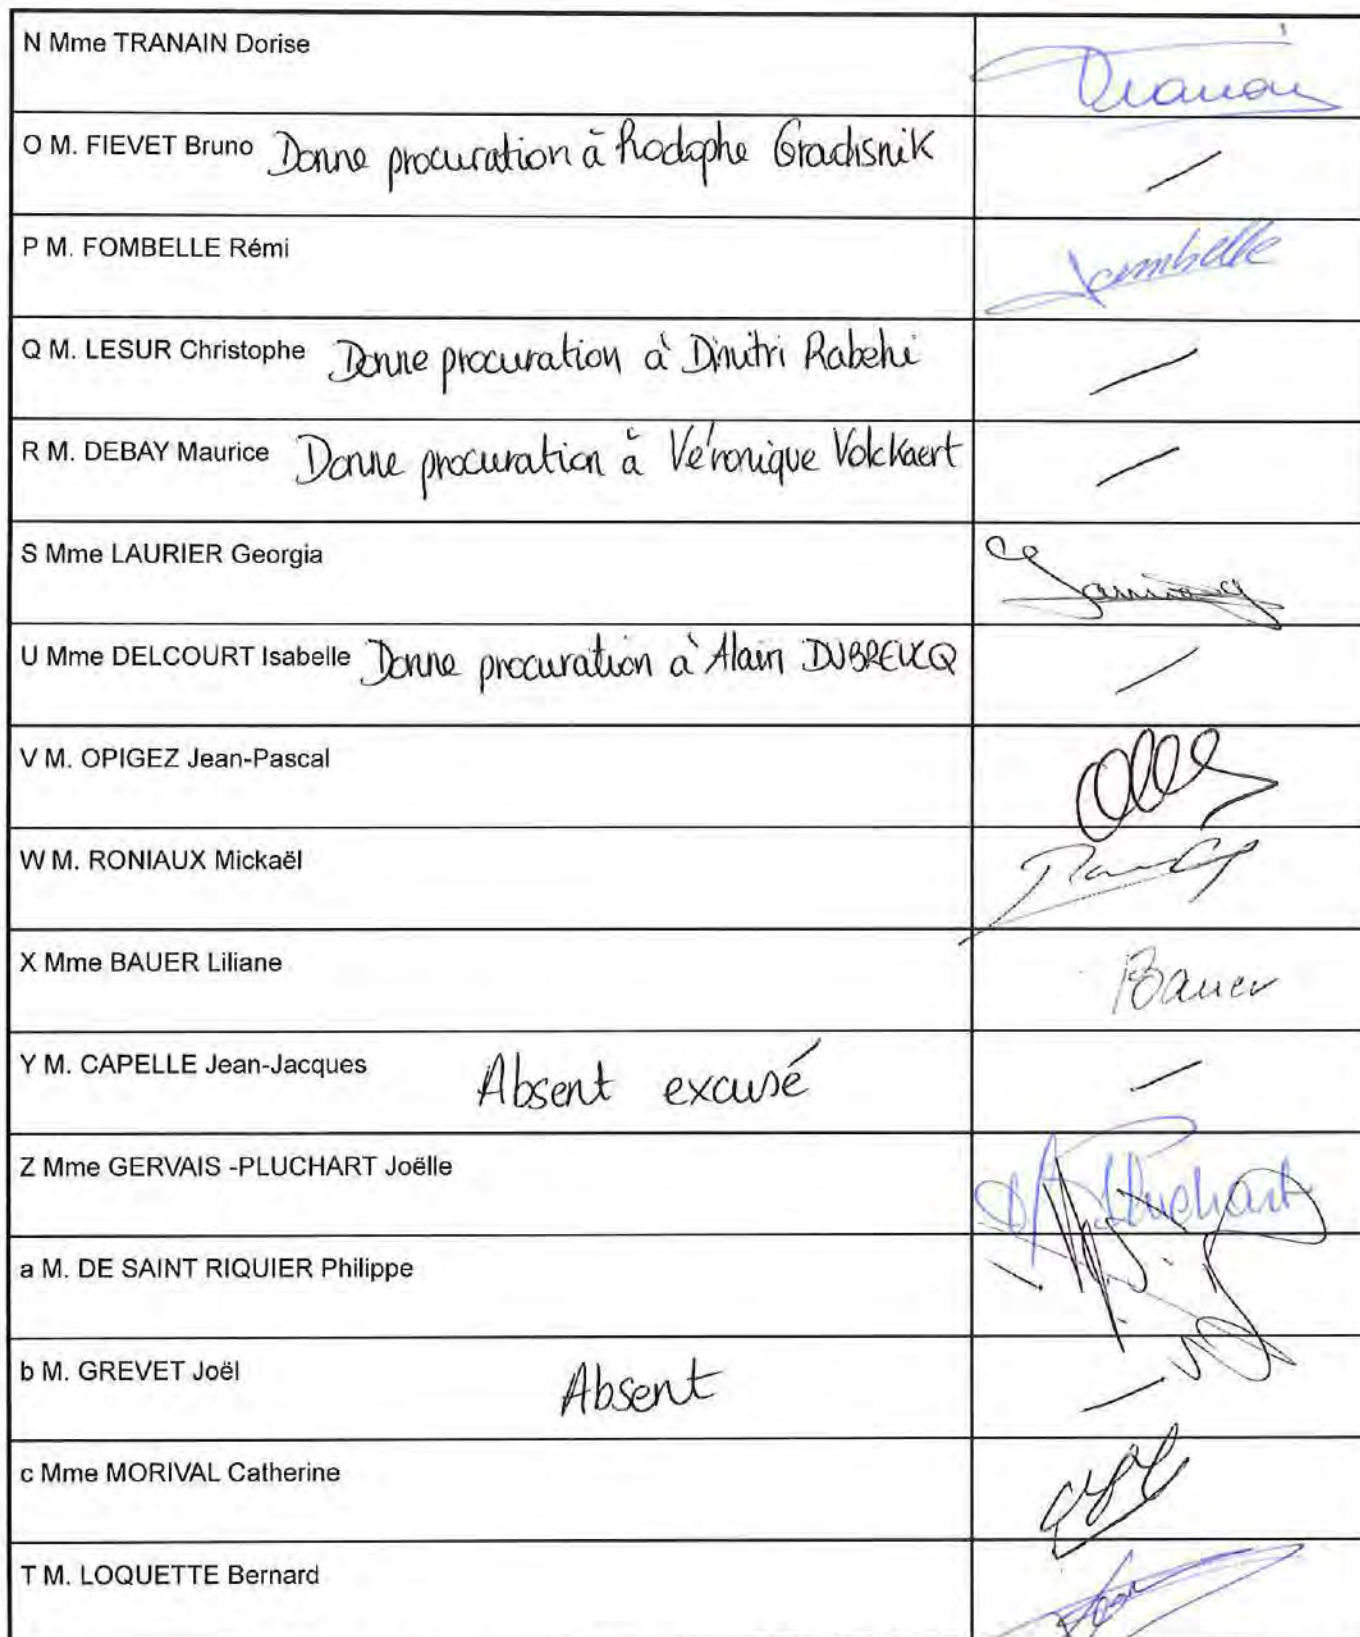 N Mme TRANAIN Dorise
O M. FIEVET Bruno Donne procuration à Rodophe Grachsnik
P M. FOMBELLE Rémi
Fombelle
Q M. LESUR Christophe Donne procuration à Dimitri Rabehi
R M. DEBAY Maurice Donne procuration à Véronique Volckaert
S Mme LAURIER Georgia
U Mme DELCOURT Isabelle Donne procuration à Alain DUBREUCQ
V M. OPIGEZ Jean-Pascal
W M. RONIAUX Mickaël
X Mme BAUER Liliane
Bauer
Y M. CAPELLE Jean-Jacques Absent excusé
Z Mme GERVAIS -PLUCHART Joëlle
Pluchart
a M. DE SAINT RIQUIER Philippe
b M. GREVET Joël Absent
c Mme MORIVAL Catherine
T M. LOQUETTE Bernard